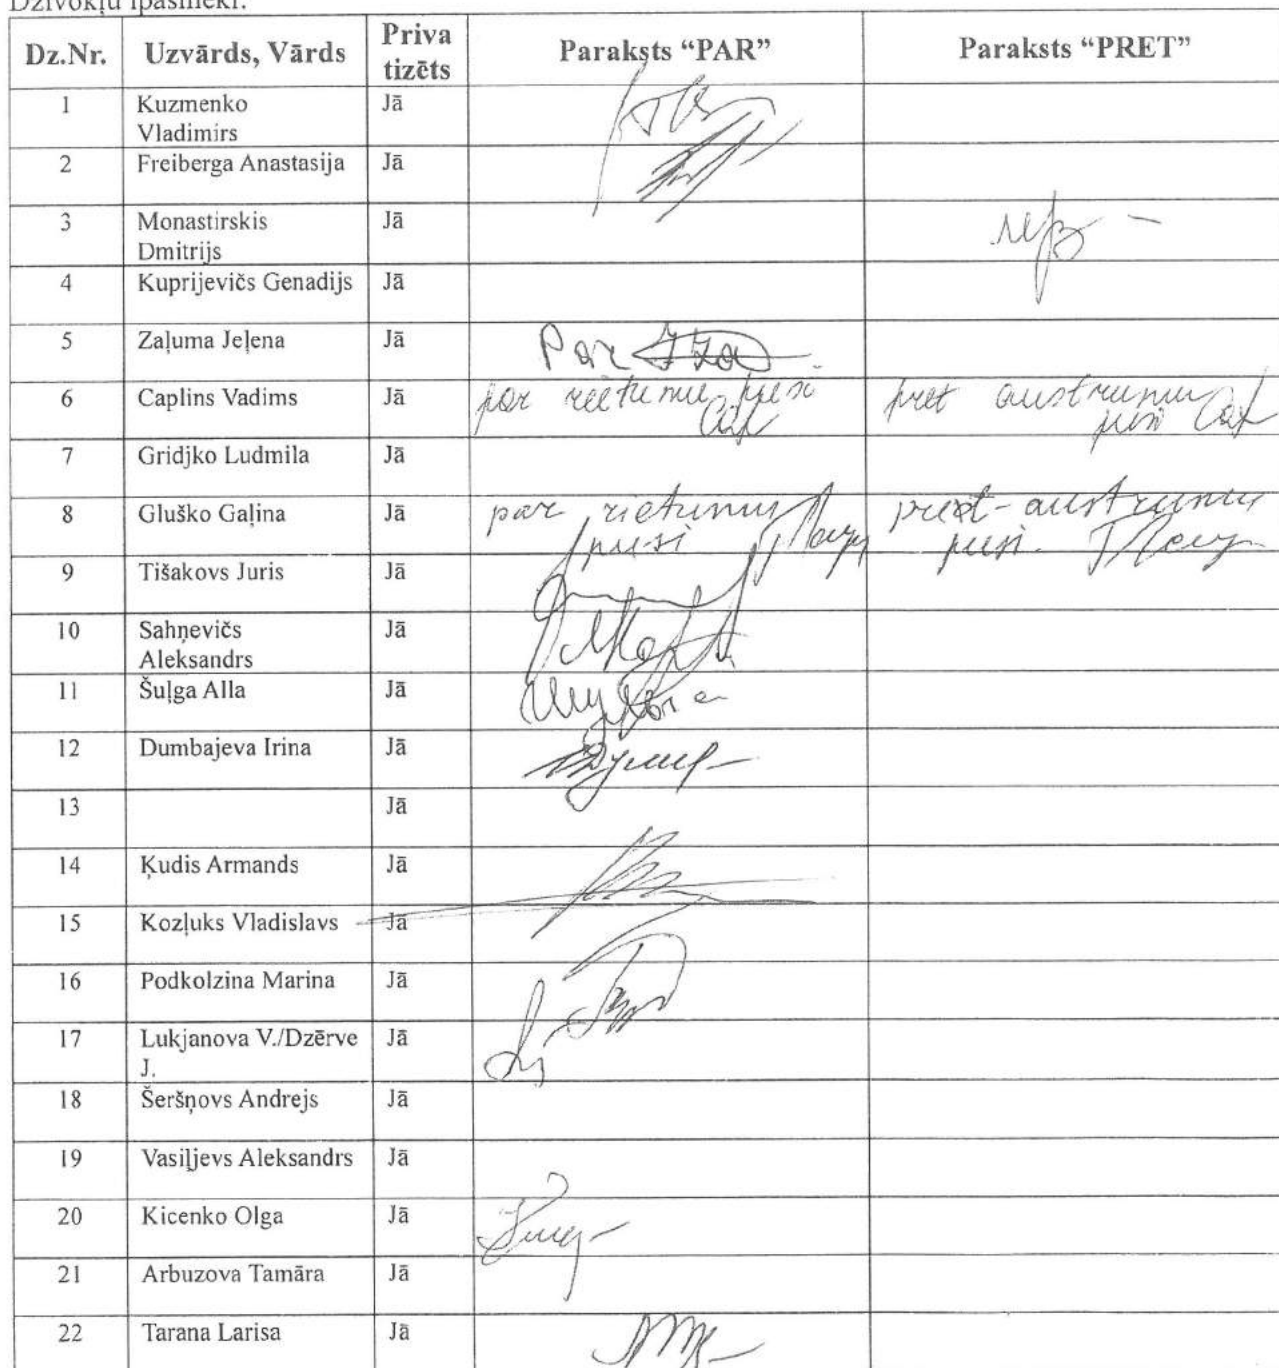 Dzīvokļu īpašnieki:
Dz.Nr. Uzvārds, Vārds Priva tizēts Paraksts “PAR” Paraksts “PRET”
1 Kuzmenko Jā
Vladimirs
2 Freiberga Anastasija Jā
3 Monastirskis Jā
Dmitrijs
4 Kuprijevičs Genadijs Jā
5 Zaļuma Jeļena Jā Par
6 Caplins Vadims Jā par rietumu pusi pret austrumu pusi
7 Gridjko Ludmila Jā
8 Gluško Gaļina Jā par rietumus pusi pret-austrumus pusi.
9 Tišakovs Juris Jā
10 Sahņevičs Jā
Aleksandrs
11 Šuļga Alla Jā
12 Dumbajeva Irina Jā
13 Jā
14 Ķudis Armands Jā
15 Kozļuks Vladislavs Jā
16 Podkolzina Marina Jā
17 Lukjanova V./Dzērve Jā
J.
18 Šeršņovs Andrejs Jā
19 Vasiļjevs Aleksandrs Jā
20 Kicenko Olga Jā
21 Arbuzova Tamāra Jā
22 Tarana Larisa Jā